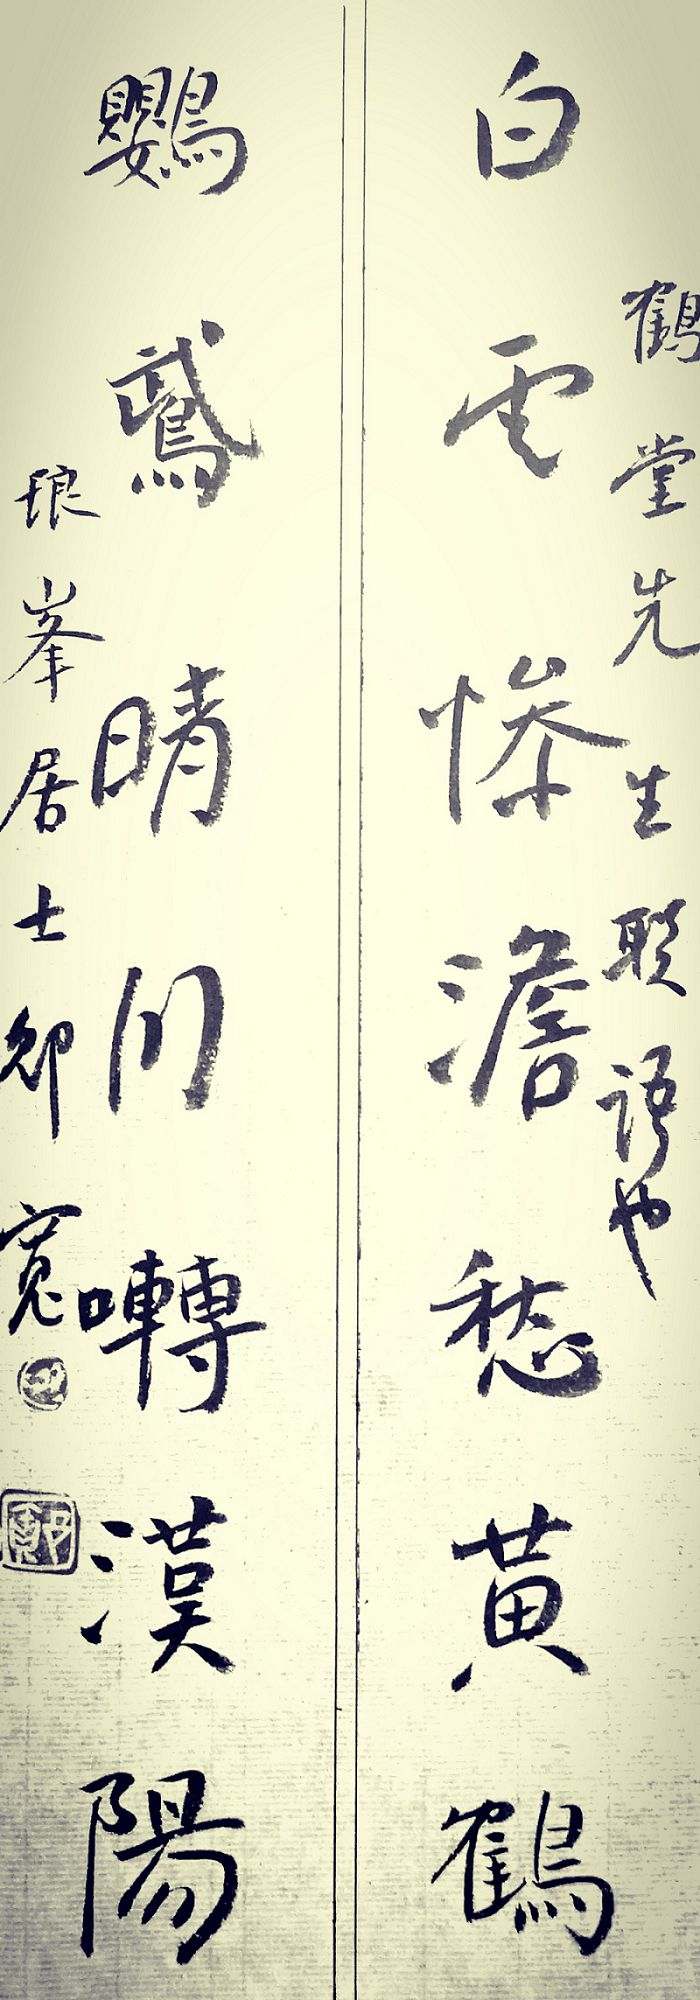 鶴堂先生联語也
白雲惨澹愁黄鶴
鸚鵡晴川囀漢陽
琅峯居士卯寬